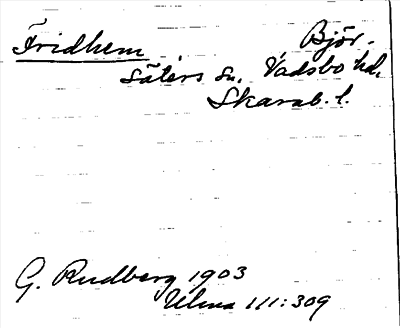 Fridhem Björ.
Sätérs sn. Vadsbo hd.
Skarab. l.
G. Rudberg 1903
Ulma 111:309